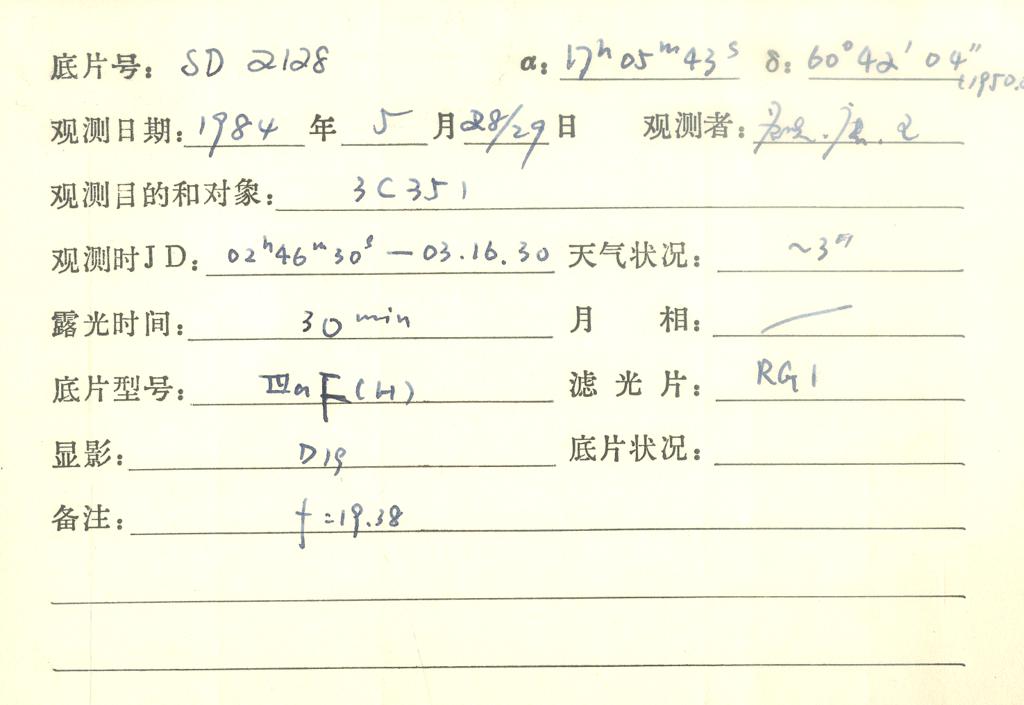 底片号: SD 2128 α: 17ʰ 05ᵐ 43ˢ δ: 60° 42′ 04″ (1950.0
观测日期: 1984 年 5 月 28/29 日 观测者:
观测目的和对象: 3C351
观测时JD: 02ʰ46ᵐ30ˢ — 03.16.30 天气状况: ~3″
露光时间: 30 min 月 相: /
底片型号: ⅢaF(H) 滤光片: RG1
显影: D19 底片状况:
备注: f=19.38